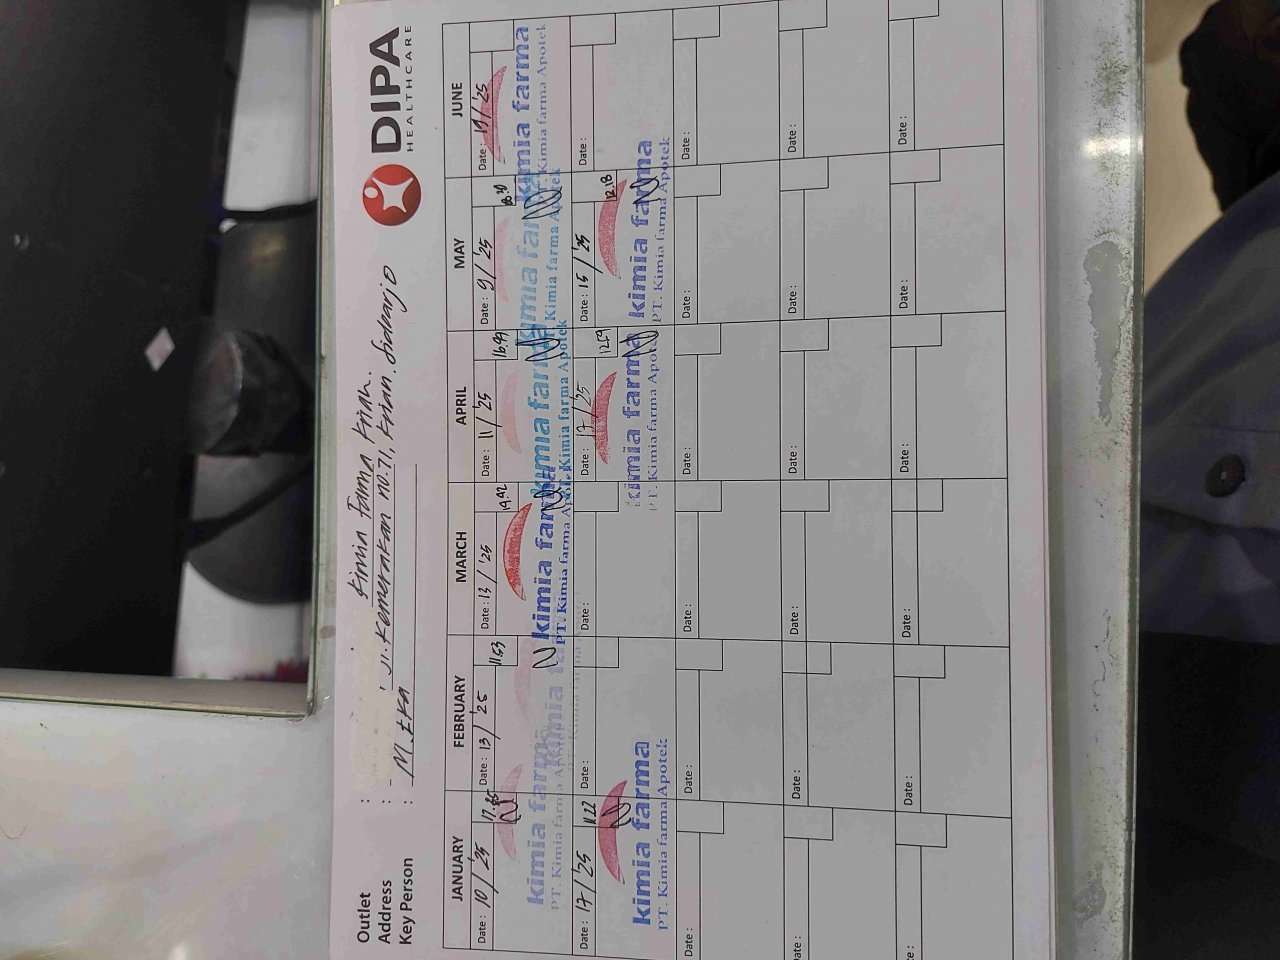 DIPA
HEALTHCARE
Outlet : Kimia Farma Krian.
Address : Jl. Kemerakan no. 71, Krian. Sidoarjo
Key Person : M. Eka
JANUARY FEBRUARY MARCH APRIL MAY JUNE
Date : 10/'25 Date : 13/'25 Date : 13/'25 Date : 11/'25 Date : 9/'25 Date : 19/'25
11.53 19.42 16.49
kimia farma kimia farma kimia farma kimia farma kimia farma kimia farma
PT. Kimia farma Apotek PT. Kimia farma Apotek Kimia farma Apotek Kimia farma Apotek Kimia farma Apotek
Date : 17/'25 Date : Date : Date : 17/'25 Date : 15/'25 Date :
11.22 12.59 12.18
kimia farma kimia farma kimia farma
PT. Kimia farma Apotek PT. Kimia farma Apotek PT. Kimia farma Apotek
Date : Date : Date : Date : Date : Date :
Date : Date : Date : Date : Date :
Date : Date : Date : Date : Date :